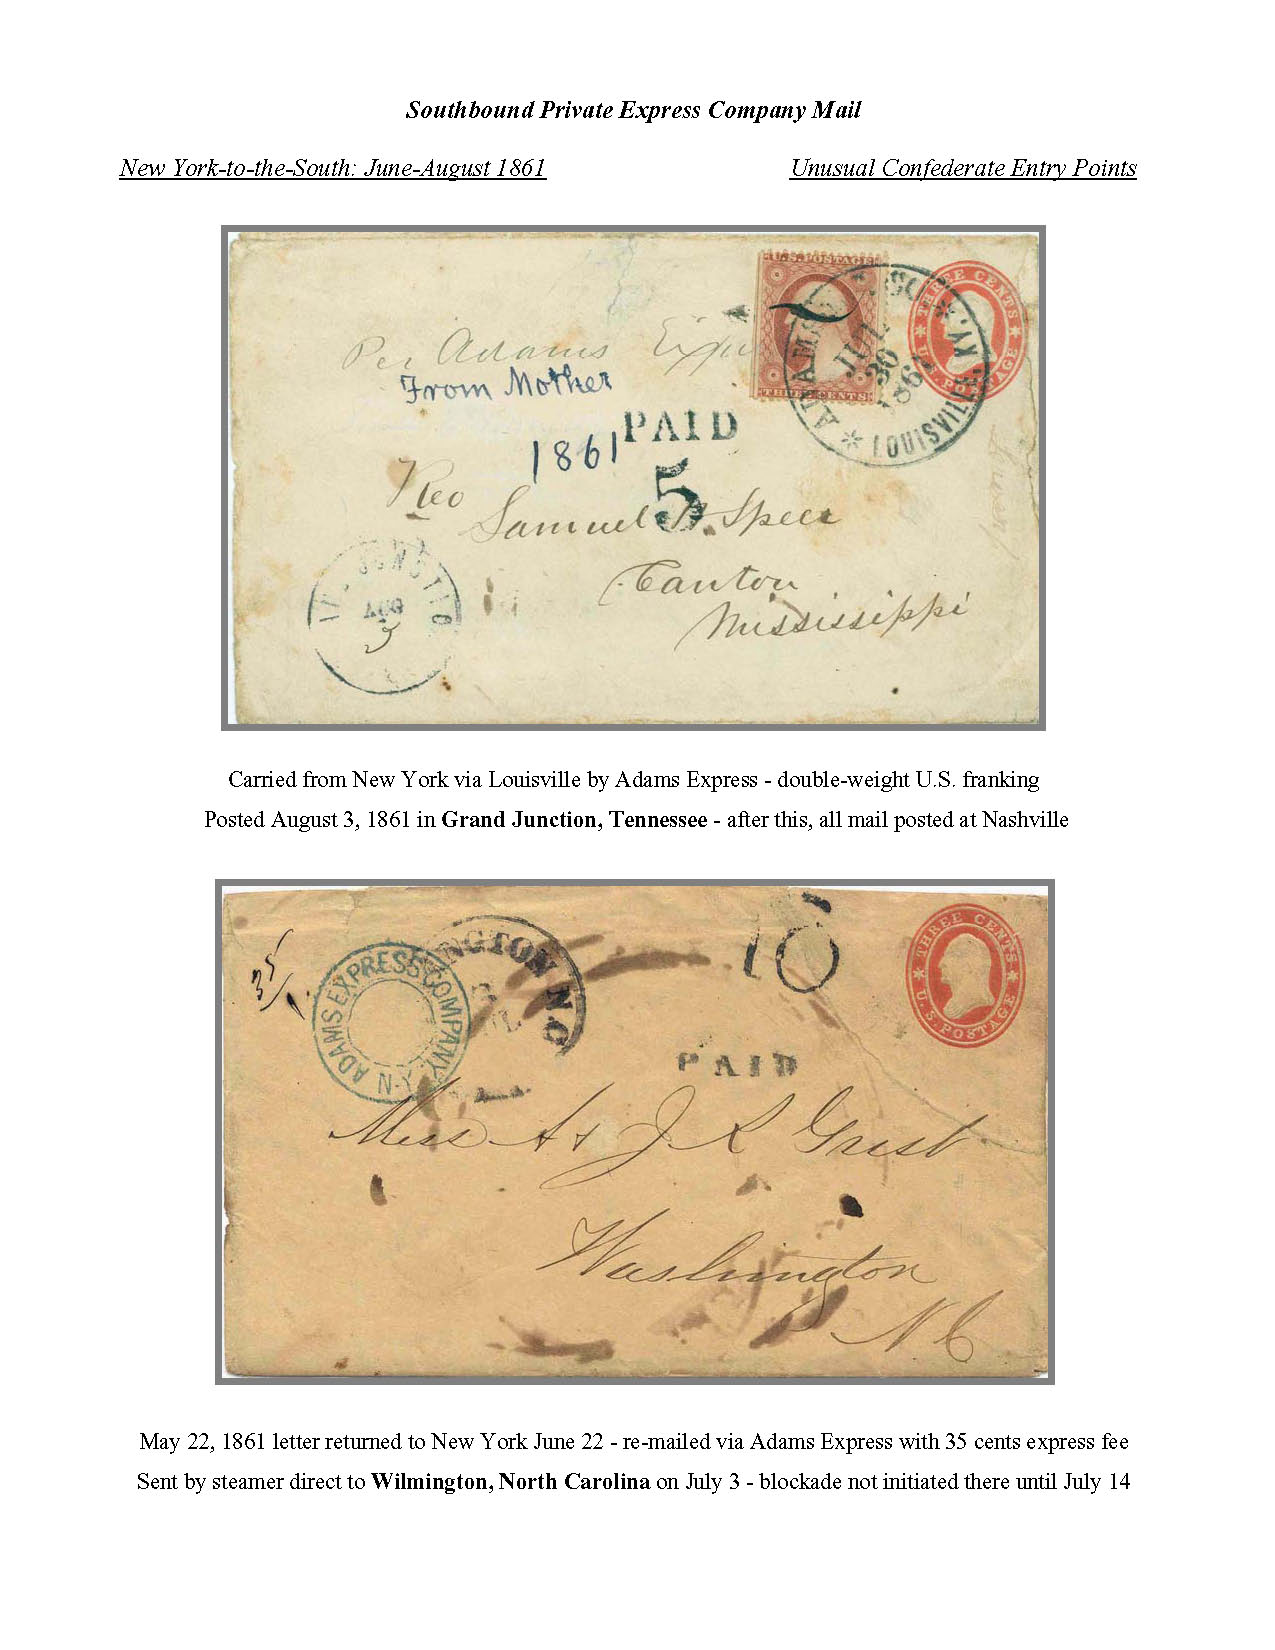 Southbound Private Express Company Mail
New York-to-the-South: June-August 1861
Unusual Confederate Entry Points
U.S. POSTAGE
THREE CENTS
THREE CENTS
U.S. POSTAGE
ADAMS
JUL
30
LOUISVILLE, KY.
Per Adams
From Mother
PAID
1861
5
Samuel Speer
Canton
Mississippi
AUG
3
Carried from New York via Louisville by Adams Express - double-weight U.S. franking
Posted August 3, 1861 in Grand Junction, Tennessee - after this, all mail posted at Nashville
35
ADAMS EXPRESS COMPANY. N-Y.
NGTON N.C
10
THREE CENTS
U.S. POSTAGE
PAID
Miss A & J R Grist
Washington
N C
May 22, 1861 letter returned to New York June 22 - re-mailed via Adams Express with 35 cents express fee
Sent by steamer direct to Wilmington, North Carolina on July 3 - blockade not initiated there until July 14